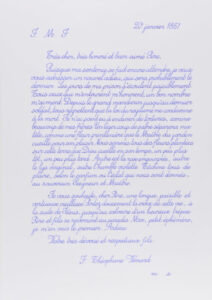 20 janvier 1861
J. M. J.
Très cher, très honoré et bien aimé Père,
Puisque ma sentence se fait encore attendre, je veux
vous adresser un nouvel adieu, qui sera probablement le
dernier. Les jours de ma prison s'écoulent paisiblement.
Tous ceux qui m'entourent m'honorent, un bon nombre
m'aiment. Depuis le grand mandarin jusqu'au dernier
soldat, tous regrettent que la loi du royaume me condamne
à la mort. Je n'ai point eu à endurer de tortures, comme
beaucoup de mes frères. Un léger coup de sabre séparera ma
tête, comme une fleur printanière que le Maître du jardin
cueille pour son plaisir. Nous sommes tous des fleurs plantées
sur cette terre que Dieu cueille en son temps, un peu plus
tôt, un peu plus tard. Autre est la rose empourprée, autre
le lys virginal, autre l'humble violette. Tâchons tous de
plaire, selon le parfum ou l'éclat qui nous sont donnés,
au souverain Seigneur et Maître.
Je vous souhaite, cher Père, une longue, paisible et
vertueuse vieillesse. Portez doucement la croix de cette vie, à
la suite de Jésus, jusqu'au calvaire d'un heureux trépas.
Père et fils se reverront au paradis. Moi, petit éphémère,
je m'en vais le premier. Adieu.
Votre très dévoué et respectueux fils.
J. Théophane Vénard